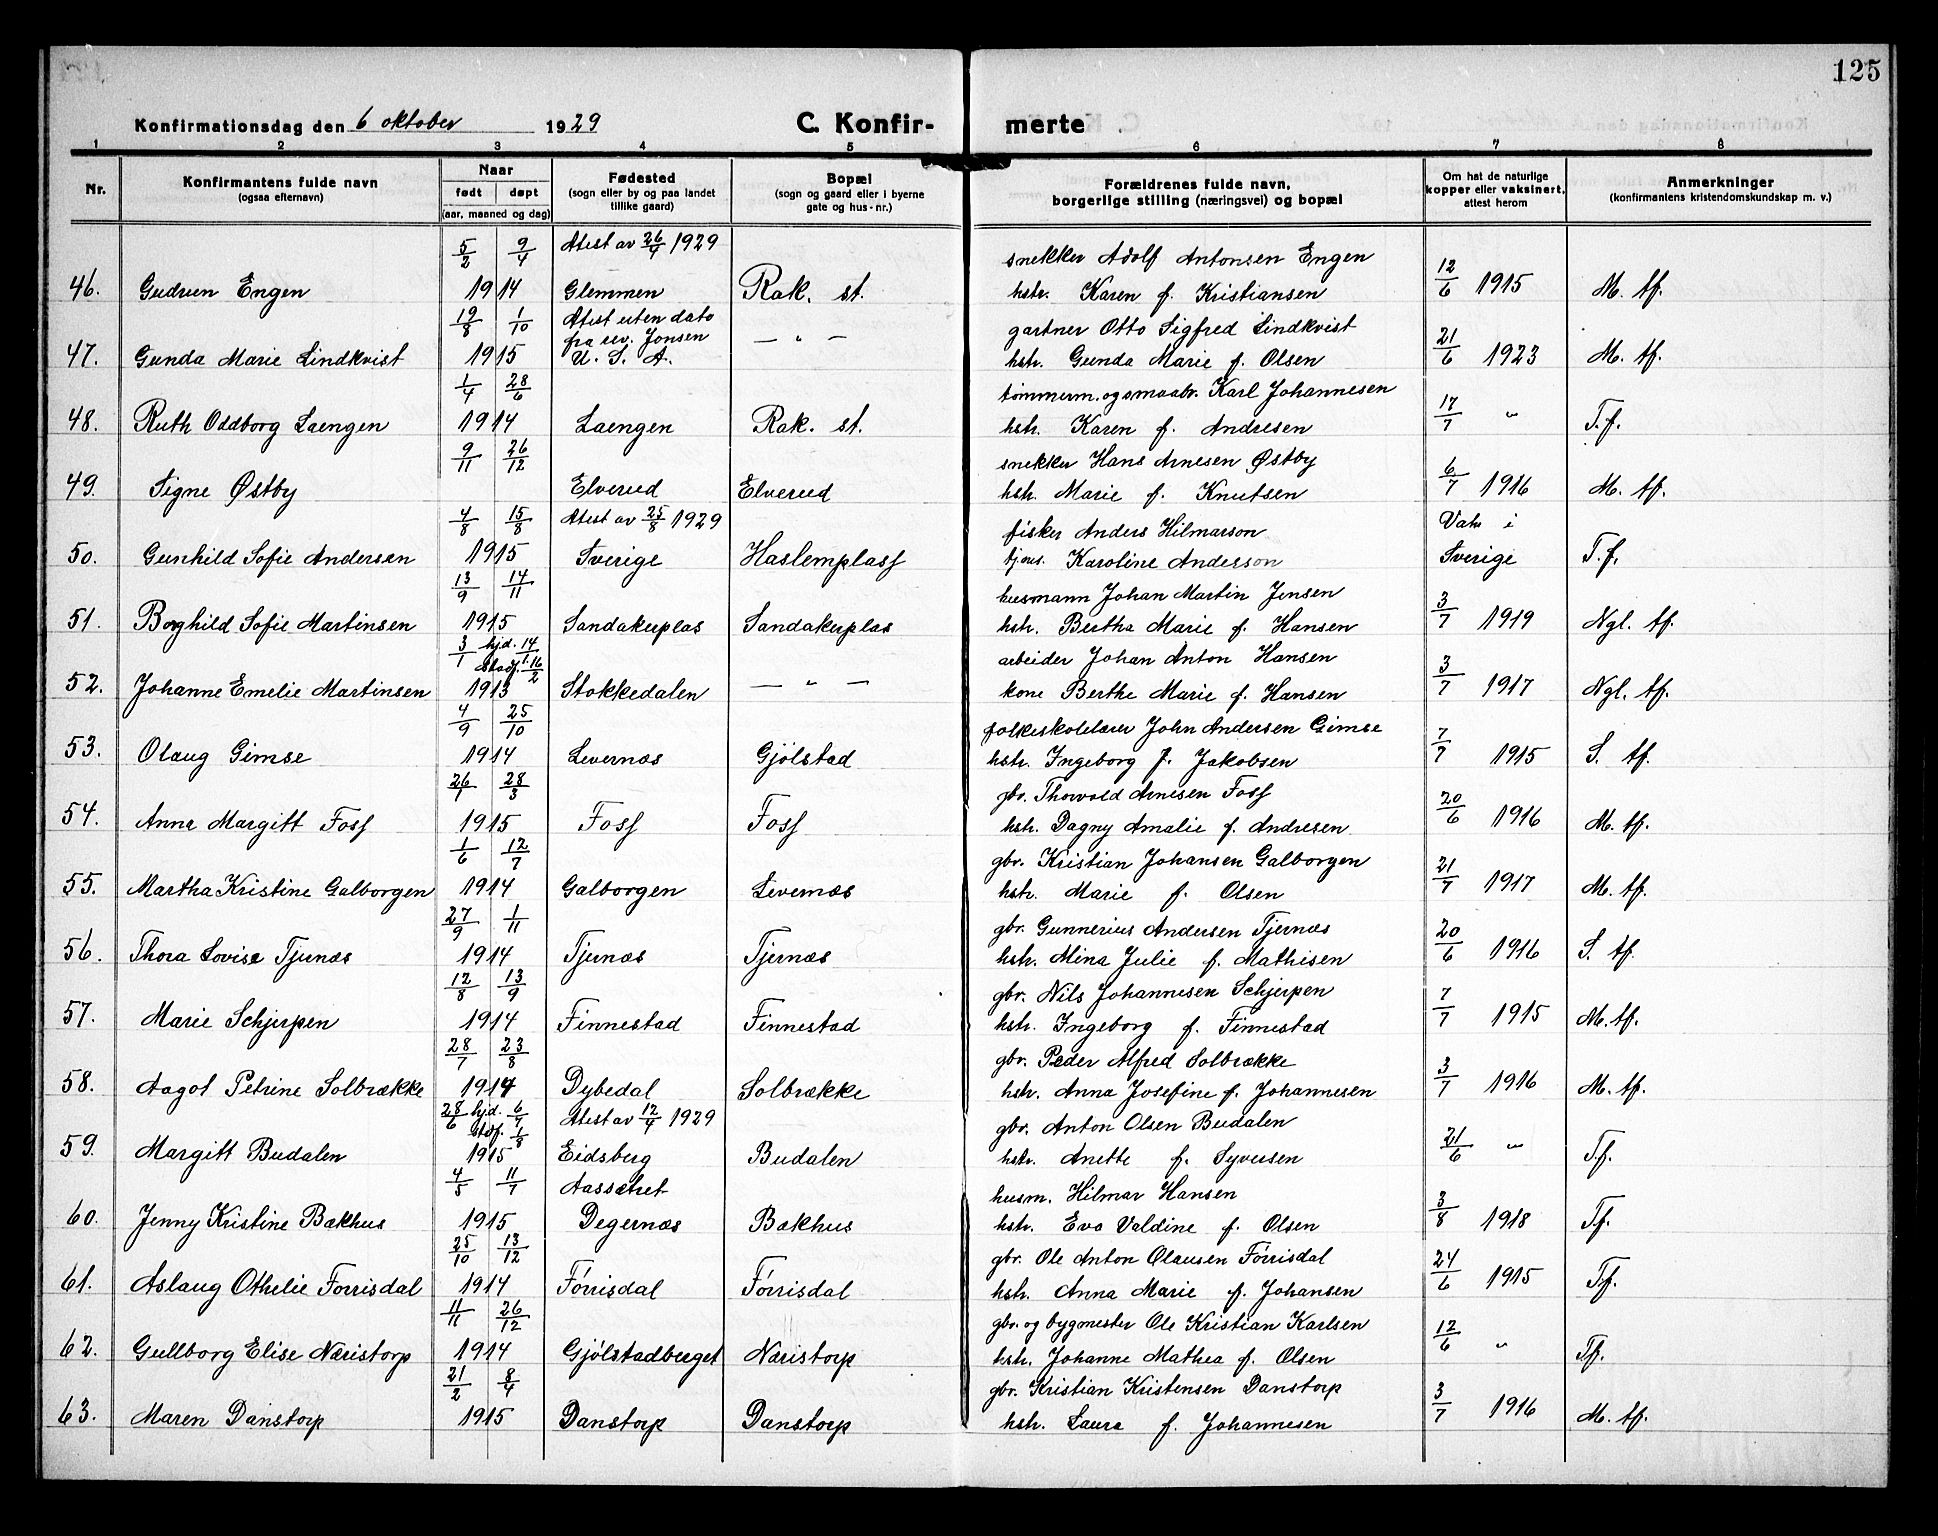 125
Konfirmationsdag den 6 oktober 1929 C. Konfir- merte
1 2 3 4 5 6 7 8
Nr. Konfirmantens fulde navn (ogsaa efternavn) Naar født døpt (aar, maaned og dag) Fødested (sogn eller by og paa landet tillike gaard) Bopæl (sogn og gaard eller i byerne gate og hus-nr.) Forældrenes fulde navn, borgerlige stilling (næringsvei) og bopæl Om hat de naturlige kopper eller vaksinert, attest herom Anmerkninger (konfirmantens kristendomskundskap m. v.)
5/2 9/4 Atest av 26/4 1929 snekker Adolf Antonsen Engen
46. Gudrun Engen 1914 Glemmen Rak. st. hstr. Karen f. Kristiansen 12/6 1915 M. tf.
19/8 1/10 Atest uten dato fra rev. Jonsen gartner Otto Sigfred Lindkvist
47. Gunda Marie Lindkvist 1915 U. S. A. — " — hstr. Gunda Marie f. Olsen 21/6 1923 M. tf.
1/4 28/6 tømmerm. og smaabr. Karl Johannesen
48. Ruth Oddborg Laengen 1914 Laengen Rak. st. hstr. Karen f. Andresen 17/7 " T.f.
9/11 26/12 snekker Hans Arnesen Østby
49. Signe Østby Elverud Elverud hstr. Marie f. Knutsen 6/7 1916 M. tf.
4/8 15/8 Atest av 25/8 1929 fisker Anders Hilmarson Vaks i
50. Gunhild Sofie Andersen 1915 Sverige Haslemplass Karoline Anderson Sverige T.f.
13/9 14/11 husmann Johan Martin Jensen
51. Borghild Sofie Martinsen 1915 Sandakerplas Sandakerplas hstr. Bertha Marie f. Hansen 3/7 1919 Ngl. tf.
3/1 hjd. 14/1 stadf. 16/2 arbeider Johan Anton Hansen
52. Johanne Emelie Martinsen 1913 Stokkedalen — " — kone Berthe Marie f. Hansen 3/7 1917 Ngl. tf.
4/9 25/10 folkeskolelærer John Andersen Gimse
53. Olaug Gimse 1914 Levernæs Gjölstad hstr. Ingeborg f. Jakobsen 7/7 1915 S. tf.
26/1 28/3 gbr. Thorvold Arnesen Foss
54. Anna Margitt Foss 1915 Foss Foss hstr. Dagny Amalie f. Andresen 20/6 1916 M. tf.
1/6 12/7 gbr. Kristian Johansen Galborgen
55. Martha Kristine Galborgen 1914 Galborgen Levernæs hstr. Marie f. Olsen 21/7 1917 M. tf.
27/9 1/11 gbr. Gunnerius Andersen Tjernæs
56. Thora Lovise Tjernæs 1914 Tjernæs Tjernæs hstr. Mina Julie f. Mathisen 20/6 1916 S. tf.
12/8 13/9 gbr. Nils Johannesen Schjerpen
57. Marie Schjerpen 1914 Finnestad Finnestad hstr. Ingeborg f. Finnestad 7/7 1915 M. tf.
28/7 23/8 gbr. Peder Alfred Solbrække
58. Aagot Petrine Solbrække 1914 Dybedal Solbrække hstr. Anna Josefine f. Johannesen 3/7 1916 M. tf.
28/6 hjd. 6/7 stdf. 1/8 Atest av 12/4 1929 gbr. Anton Olsen Budalen
59. Margitt Budalen 1915 Eidsberg Budalen hstr. Anette f. Syversen 21/6 " T.f.
4/5 11/7 Aassætret husm. Hilmar Hansen
60. Jenny Kristine Bakhus 1915 Degernæs Bakhus hstr. Eva Valdine f. Olsen 3/8 1918 T.f.
25/10 13/12 gbr. Ole Anton Olausen Förrisdal
61. Aslaug Othelie Forrisdal 1914 Förrisdal Förrisdal hstr. Anna Marie f. Johansen 24/6 1915 T.f.
11/11 26/12 gbr. og bygmester Ole Kristian Karlsen
62. Gullborg Elise Næristorp 1914 Gjölstadberget Næristorp hstr. Johanne Mathea f. Olsen 12/6 " T.f.
21/2 8/4 gbr. Kristian Kristensen Danstorp
63. Maren Danstorp 1915 Danstorp Danstorp hstr. Laura f. Johannesen 3/7 1916 M. tf.